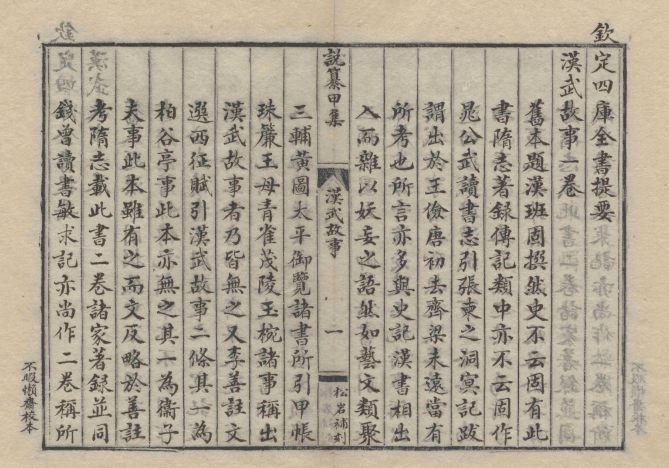 欽定四庫全書提要
漢武故事一卷
舊本題漢班固撰然史不云固有此
書隋志著録傳記類中亦不云固作
晁公武讀書志引張柬之洞冥記跋
謂出於王儉唐初去齊梁未遠當有
所考也所言亦多與史記漢書相出
入而雜以妖妄之語然如藝文類聚
說纂甲集
漢武故事
一
松岩補刻
三輔黃圖太平御覽諸書所引甲帳
珠簾王母青雀茂陵玉椀諸事稱出
漢武故事者乃皆無之又李善註文
選西征賦引漢武故事二條其一為
柏谷亭事此本亦無之其一為衞子
夫事此本雖有之而文反略於善註
考隋志載此書二卷諸家著録並同
錢曾讀書敏求記亦尚作二卷稱所
不暇懶齋校本